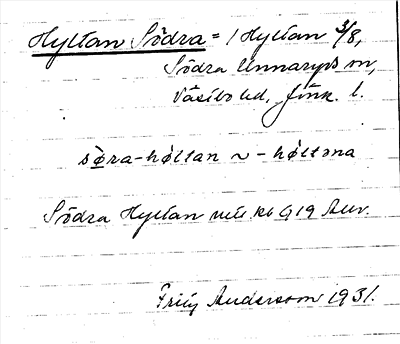 Hyltan Södra = 1 Hyltan 3/8,
Södra Unnaryds sn,
Västbo hd, Jönk. l.
søra-høltan ~ -høltona
Södra Hyltan
Fritz Andersson 1931.